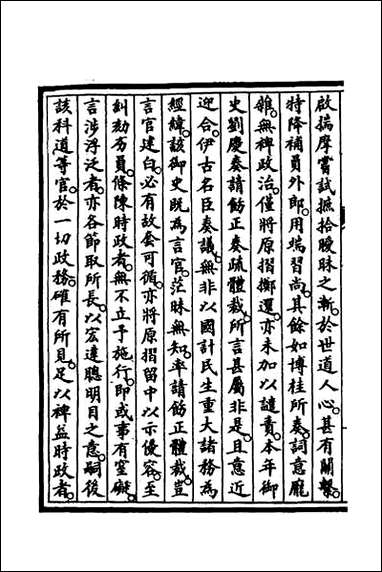 啟揣摩嘗試摭拾曖昧之漸於世道人心甚有關繫
特降補員外郎用端習尚其餘如博桂所奏詞意龐
雜無裨政治僅將原摺擲還亦未加以譴責本年御
史劉慶奏請飭正奏疏體裁所言甚屬非是且意近
迎合伊古名臣奏議無非以國計民生重大諸務為
經緯該御史既為言官茫昧無知率請飭正體裁豈
言官建白必有故套可循亦將原摺留中以示優容至
糾劾有員條陳時政者無不立予施行即或事有窒礙
言涉浮泛者亦各節取所長以宏達聰明目之意嗣後
該科道等官於一切政務確有所見足以裨益時政者